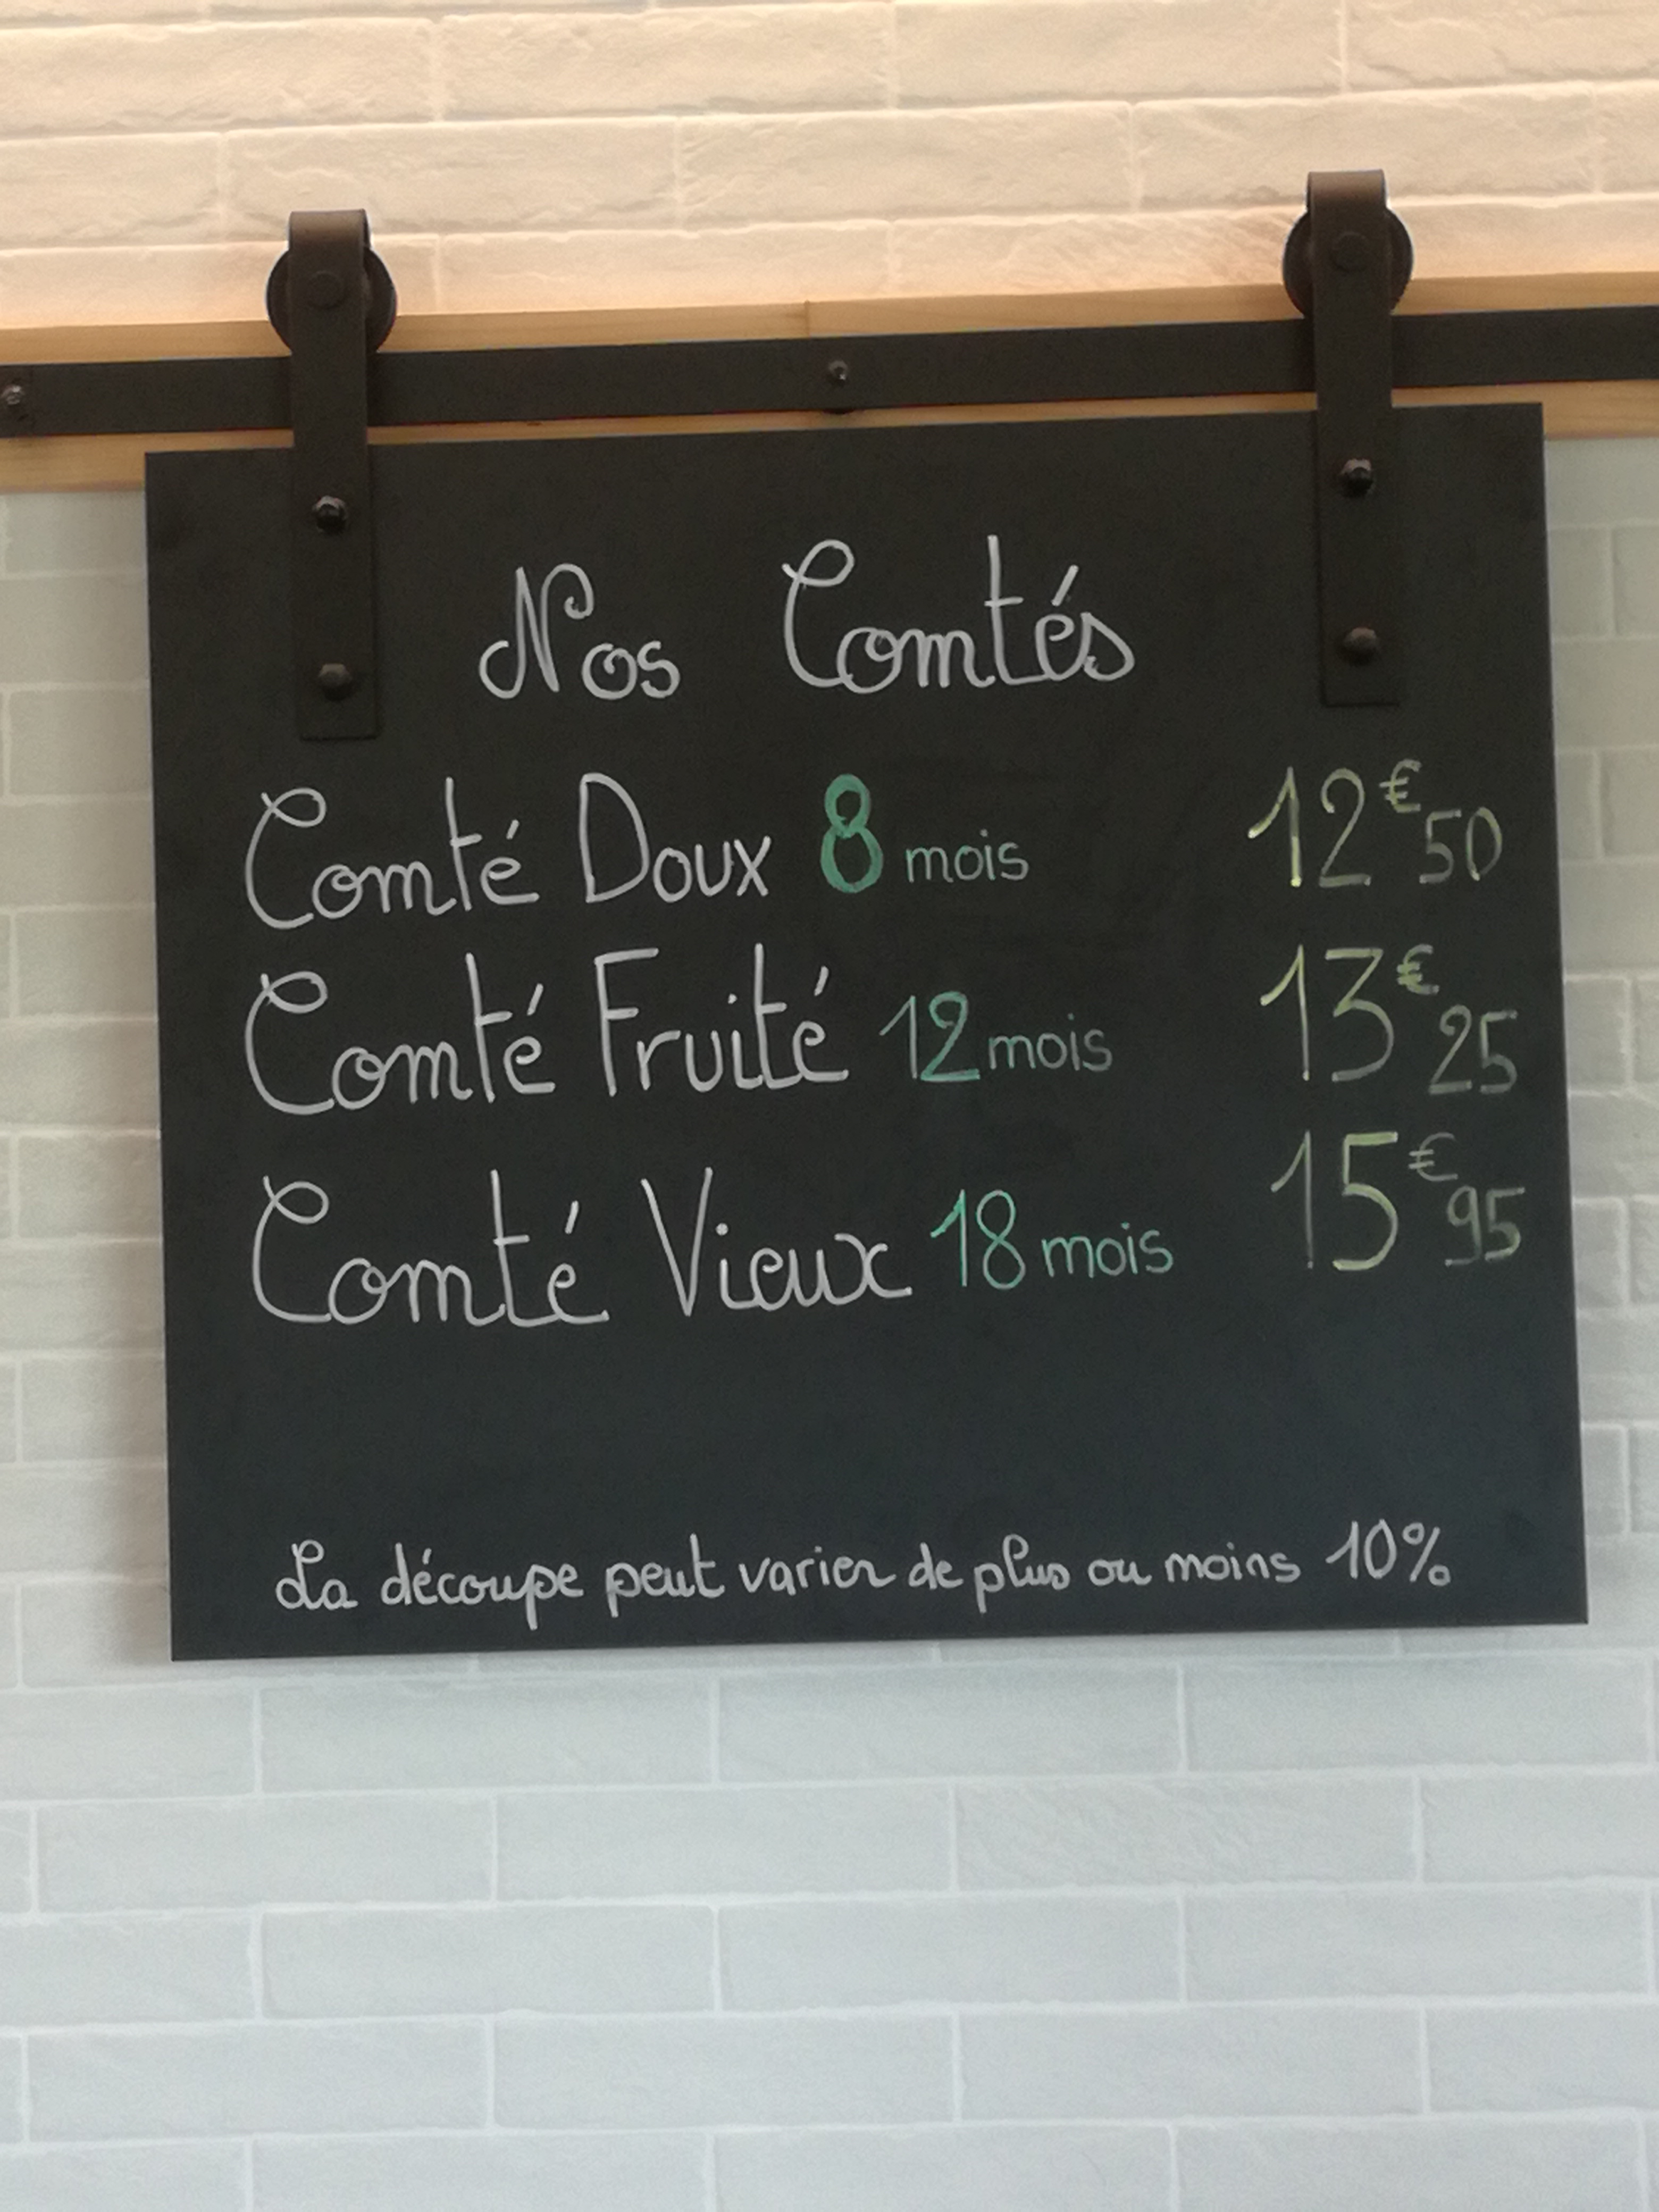 Nos Comtés
Comté Doux 8 mois 12€50
Comté Fruité 12 mois 13€25
Comté Vieux 18 mois 15€95
La découpe peut varier de plus ou moins 10%